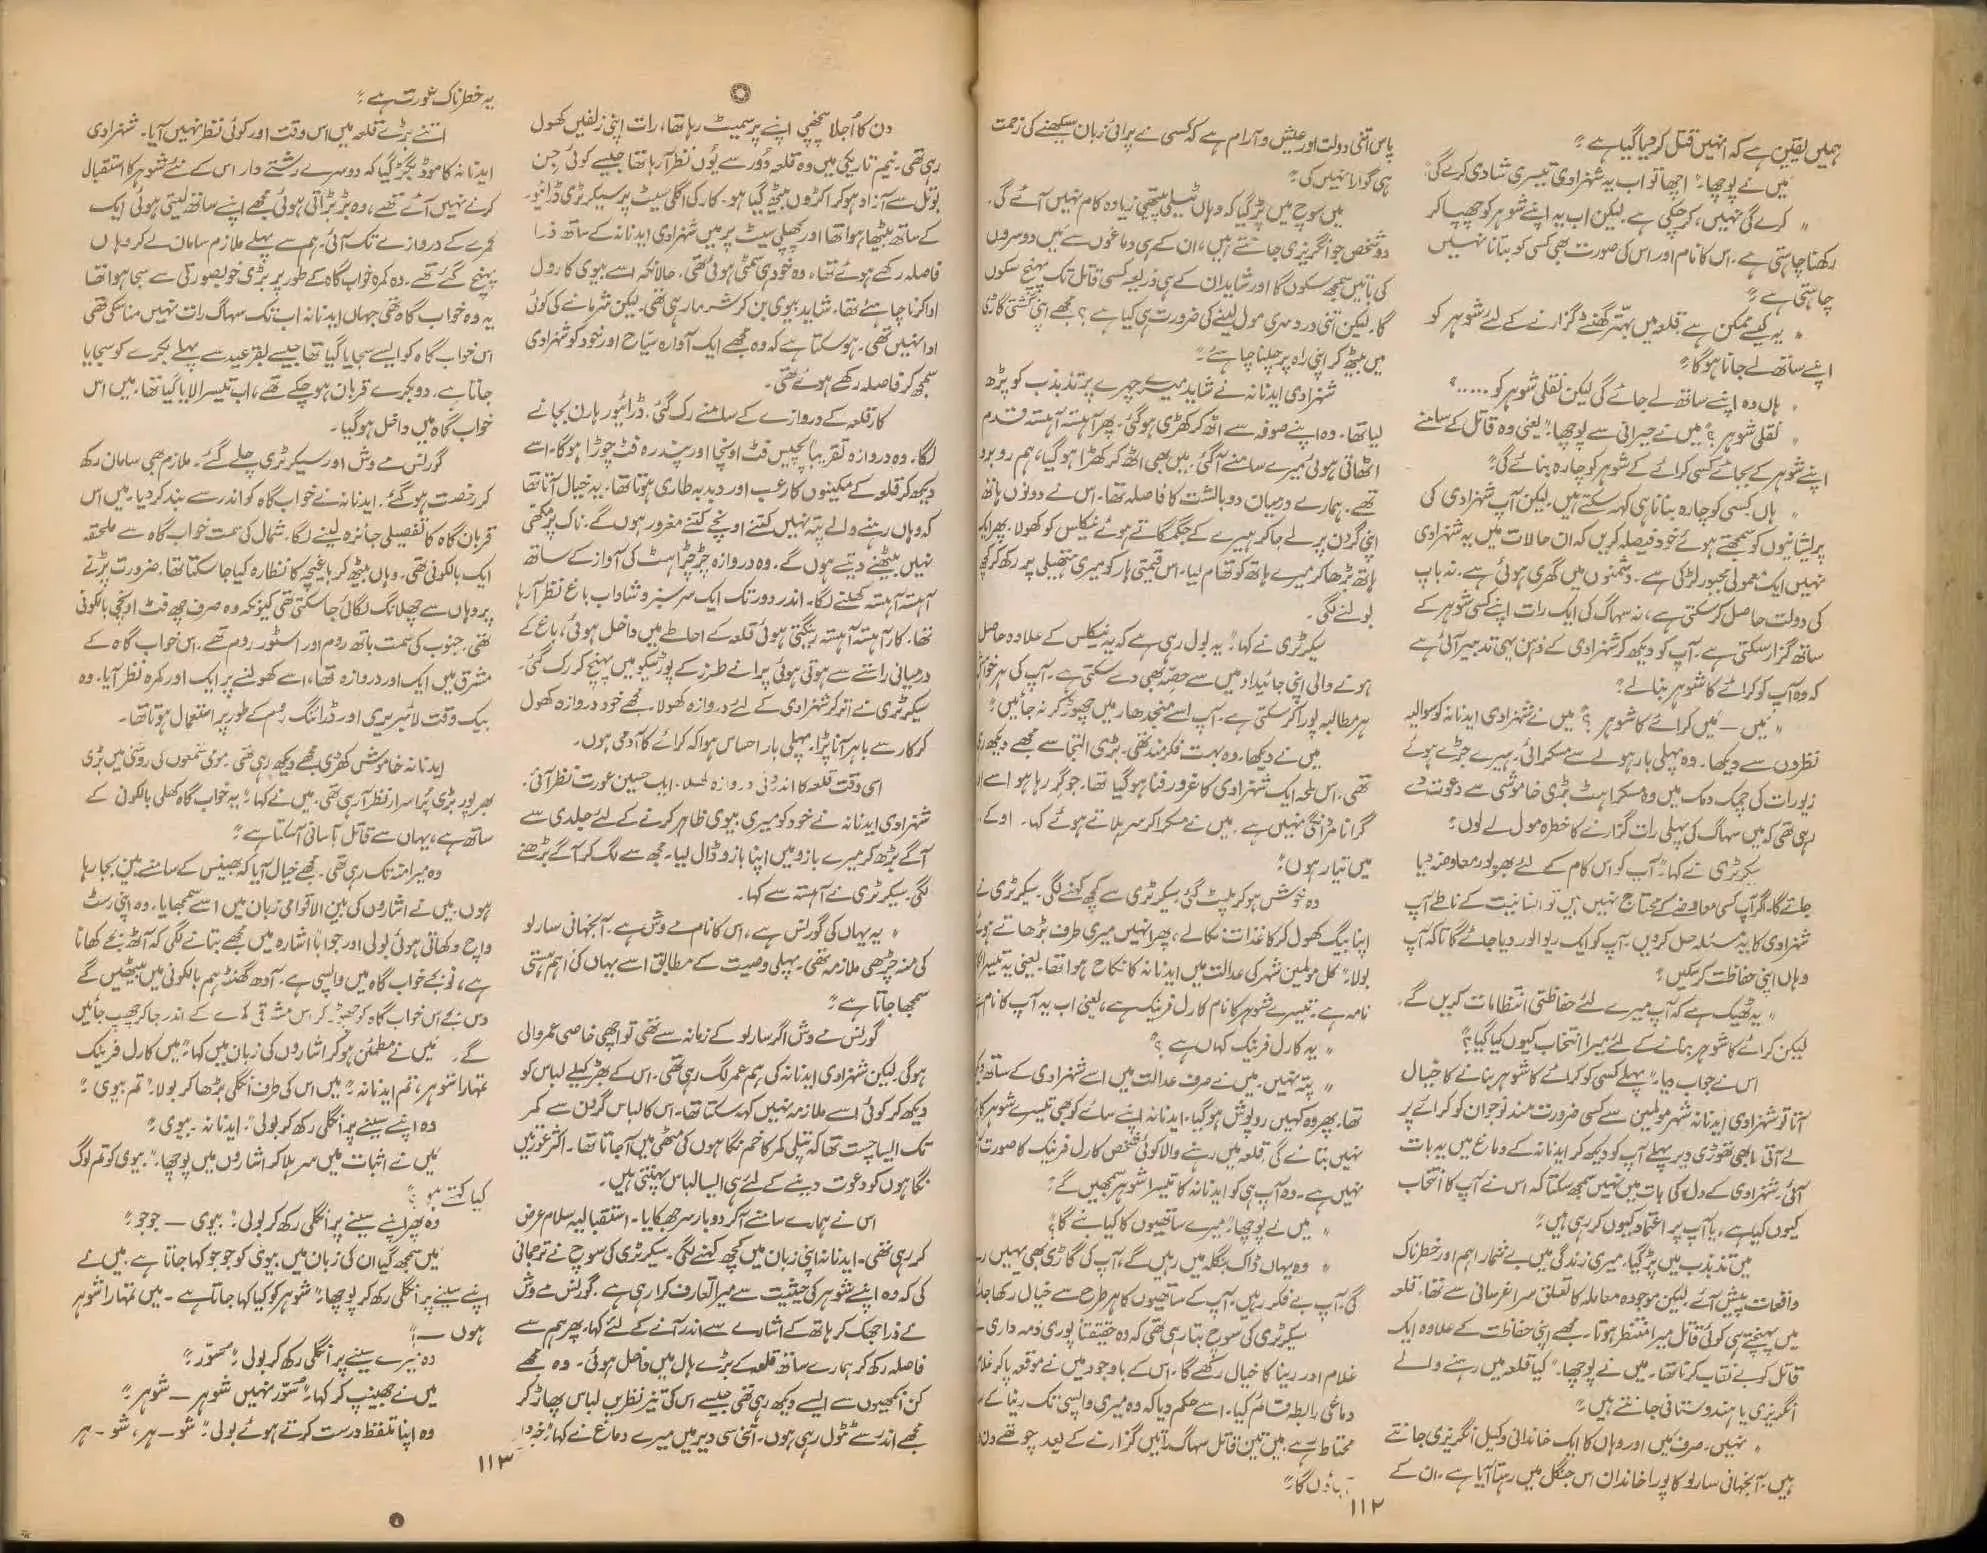 ہمیں یقین ہے کہ انہیں قتل کر دیا گیا ہے؛
میں نے پوچھا۔ "اچھا تو اب یہ شہزادی تیسری شادی کرے گی؟
" کرے گی نہیں، کر چکی ہے۔ لیکن اب یہ اپنے شوہر کو چھپا کر
رکھنا چاہتی ہے۔ اس کا نام اور اس کی صورت بھی کسی کو بتانا نہیں
چاہتی ہے؛
" یہ کیسے ممکن ہے۔ قلعہ میں بہتّر گھنٹے گزارنے کے لئے شوہر کو
اپنے ساتھ لے جانا ہوگا؛
" ہاں وہ اپنے ساتھ لے جائے گی لیکن نقلی شوہر کو ....."
" نقلی شوہر؟" میں نے حیرانی سے پوچھا۔ "یعنی وہ قاتل کے سامنے
اپنے شوہر کے بجائے کسی کرائے کے شوہر کو چارہ بنائے گی؟
" ہاں کسی کو چارہ بنانا ہی کہہ سکتے ہیں۔ لیکن آپ شہزادی کی
پریشانیوں کو سمجھتے ہوئے خود فیصلہ کریں کہ ان حالات میں یہ شہزادی
نہیں ایک معمولی مجبور لڑکی ہے۔ دشمنوں میں گھری ہوئی ہے۔ نہ باپ
کی دولت حاصل کر سکتی ہے، نہ سہاگ کی ایک رات اپنے کسی شوہر کے
ساتھ گزار سکتی ہے۔ آپ کو دیکھ کر شہزادی کے ذہن میں یہی تدبیر آئی ہے
کہ وہ آپ کو کرائے کا شوہر بنا لے؟
" میں — میں کرائے کا شوہر؟" میں نے شہزادی ایدنانہ کو سوالیہ
نظروں سے دیکھا۔ وہ پہلی بار ہولے سے مسکرائی۔ ہیرے جڑے ہوئے
زیورات کی چمک دمک میں وہ مسکراہٹ بڑی خاموشی سے دعوت دے
رہی تھی کہ میں سہاگ کی پہلی رات گزارنے کا خطرہ مول لے لوں؛
سیکرٹری نے کہا۔ "آپ کو اس کام کے لئے بھرپور معاوضہ دیا
جائے گا، اگر آپ کسی معاوضے کے محتاج نہیں ہیں تو انسانیت کے ناطے آپ
شہزادی کا یہ مسئلہ حل کر دیں۔ آپ کو ایک ریوالور دیا جائے گا تاکہ آپ
وہاں اپنی حفاظت کر سکیں؛
" یہ ٹھیک ہے کہ آپ میرے لئے حفاظتی انتظامات کریں گے۔
لیکن کرائے کا شوہر بنانے کے لئے میرا انتخاب کیوں کیا گیا؟"
اس نے جواب دیا۔ "پہلے کسی کو کرائے کا شوہر بنانے کا خیال
آتا تو شہزادی ایدنانہ شہر مولمین سے کسی ضرورت مند نوجوان کو کرائے پر
لے آتی۔ ابھی تھوڑی دیر پہلے آپ کو دیکھ کر ایدنانہ کے دماغ میں یہ بات
آئی۔ شہزادی کے دل کی بات میں نہیں سمجھ سکتا کہ اس نے آپ کا انتخاب
کیوں کیا ہے، یا آپ پر اعتماد کیوں کر رہی ہیں؟"
میں تذبذب میں پڑ گیا۔ میری زندگی میں بے شمار اہم اور خطرناک
واقعات پیش آئے۔ لیکن موجودہ معاملہ کا تعلق سراغرسانی سے تھا۔ قلعہ
میں پہنچتے ہی کوئی قاتل میرا منتظر ہوتا۔ مجھے اپنی حفاظت کے علاوہ ایک
قاتل کو بے نقاب کرنا تھا۔ میں نے پوچھا۔ "کیا قلعہ میں رہنے والے
انگریزی یا ہندوستانی جانتے ہیں؟"
" نہیں۔ صرف میں اور وہاں کا ایک خاندانی وکیل انگریزی جانتے
ہیں۔ آنجہانی سارلو کا پورا خاندان اس جنگل میں رہتا آیا ہے۔ ان کے
پاس اتنی دولت اور عیش و آرام ہے کہ کسی نے پرائی زبان سیکھنے کی زحمت
ہی گوارا نہیں کی؛
میں سوچ میں پڑ گیا کہ وہاں ٹیلی پیتھی زیادہ کام نہیں آئے گی۔
دو شخص جو انگریزی جانتے ہیں، ان کے ہی دماغوں سے میں دوسروں
کی باتیں سمجھ سکوں گا اور شاید ان کے ہی ذریعہ کسی قاتل تک پہنچ سکوں
گا۔ لیکن اتنی دردسری مول لینے کی ضرورت ہی کیا ہے؟ مجھے اپنی گشتی گاڑی
میں بیٹھ کر اپنی راہ پر چلنا چاہئے؛
شہزادی ایدنانہ نے شاید میرے چہرے پر تذبذب کو پڑھ
لیا تھا۔ وہ اپنے صوفہ سے اٹھ کر کھڑی ہو گئی۔ پھر آہستہ آہستہ قدم
اٹھاتی ہوئی میرے سامنے آگئی۔ میں بھی اٹھ کر کھڑا ہو گیا، ہم روبرو
تھے۔ ہمارے درمیان دو بالشت کا فاصلہ تھا۔ اس نے دونوں ہاتھ
اپنی گردن پر لے جا کر ہیرے کے جگمگاتے ہوئے نیکلس کو کھولا۔ پھر ایک
ہاتھ بڑھا کر میرے ہاتھ کو تھام لیا۔ اس قیمتی ہار کو میری ہتھیلی پر رکھ کر کچھ
بولنے لگی۔
سیکرٹری نے کہا۔ "یہ بول رہی ہے کہ یہ نیکلس کے علاوہ حاصل
ہونے والی اپنی جائیداد میں سے حصہ بھی دے سکتی ہے۔ آپ کی ہر خواہش
ہر مطالبہ پورا کر سکتی ہے۔ آپ اسے منجدھار میں چھوڑ کر نہ جائیں؛
میں نے دیکھا۔ وہ بہت فکر مند تھی۔ بڑی التجا سے مجھے دیکھ رہی
تھی۔ اس لمحہ ایک شہزادی کا غرور فنا ہو گیا تھا۔ جو گر رہا ہو اسے اور
گرانا مردانگی نہیں ہے۔ میں نے مسکرا کر سر ہلاتے ہوئے کہا۔ "اوکے۔
میں تیار ہوں؛
وہ خوش ہو کر پلٹ گئی۔ سیکرٹری سے کچھ کہنے لگی۔ سیکرٹری نے
اپنا بیگ کھول کر کاغذات نکالے، پھر انہیں میری طرف بڑھاتے ہوئے
بولا۔ "کل مولمین شہر کی عدالت میں ایدنانہ کا نکاح ہوا تھا۔ یعنی یہ تیسرا
نامہ ہے۔ تیسرے شوہر کا نام کارل فرینک ہے، یعنی اب یہ آپ کا نام
" یہ کارل فرینک کہاں ہے؟"
" پتہ نہیں۔ میں نے صرف عدالت میں اسے شہزادی کے ساتھ دیکھا
تھا۔ پھر وہ کہیں روپوش ہو گیا۔ ایدنانہ اپنے سائے کو بھی تیسرے شوہر کا
نہیں بتانے گی۔ قلعہ میں رہنے والا کوئی شخص کارل فرینک کا صورت آشنا
نہیں ہے۔ وہ آپ ہی کو ایدنانہ کا تیسرا شوہر سمجھیں گے؛
" میں نے پوچھا۔ "میرے ساتھیوں کا کیا بنے گا؟"
" وہ یہاں ڈاک بنگلہ میں رہیں گے، آپ کی گاڑی بھی یہیں رہے
گی۔ آپ بے فکر رہیں۔ آپ کے ساتھیوں کا ہر طرح سے خیال رکھا جائے
سیکرٹری کی سوچ بتا رہی تھی کہ وہ حقیقتاً پوری ذمہ داری سے
غلام اور رینا کا خیال رکھے گا۔ اس کے باوجود میں نے موقعہ پا کر غلام
دماغی رابطہ قائم کیا۔ اسے حکم دیا کہ وہ میری واپسی تک رینا کے
محتاط رہے۔ میں تین قاتل سہاگ راتیں گزارنے کے بعد چوتھے دن
آؤں گا؛
۱۱۲
دن کا اُجلا پنچھی اپنے پر سمیٹ رہا تھا، رات اپنی زلفیں کھول
رہی تھی۔ نیم تاریکی میں وہ قلعہ دُور سے یُوں نظر آ رہا تھا جیسے کوئی جِن
بوتل سے آزاد ہو کر اکڑوں بیٹھ گیا ہو۔ کار کی اگلی سیٹ پر سیکرٹری ڈرائیور
کے ساتھ بیٹھا ہوا تھا اور پچھلی سیٹ پر میں شہزادی ایدنانہ کے ساتھ ذرا
فاصلہ رکھے ہوئے تھا، وہ خود ہی سمٹی ہوئی تھی۔ حالانکہ اسے بیوی کا رول
ادا کرنا چاہئے تھا۔ شاید بیوی بن کر شرما رہی تھی۔ لیکن شرمانے کی کوئی
ادا نہیں تھی۔ ہو سکتا ہے کہ وہ مجھے ایک آوارہ سیّاح اور خود کو شہزادی
سمجھ کر فاصلہ رکھے ہوئے تھی۔
کار قلعہ کے دروازے کے سامنے رک گئی۔ ڈرائیور ہارن بجانے
لگا۔ وہ دروازہ تقریباً پچیس فٹ اونچا اور پندرہ فٹ چوڑا ہوگا۔ اسے
دیکھ کر قلعہ کے مکینوں کا رعب اور دبدبہ طاری ہوتا تھا۔ یہ خیال آتا تھا
کہ وہاں رہنے والے پتہ نہیں کتنے اونچے کتنے مغرور ہوں گے۔ ناک پر مکھی
نہیں بیٹھنے دیتے ہوں گے۔ وہ دروازہ چرچراہٹ کی آواز کے ساتھ
آہستہ آہستہ کھلنے لگا۔ اندر دور تک ایک سرسبز و شاداب باغ نظر آ رہا
تھا۔ کار آہستہ آہستہ رینگتی ہوئی قلعہ کے احاطے میں داخل ہوئی، باغ کے
درمیانی راستے سے ہوتی ہوئی پرانے طرز کے پورٹیکو میں پہنچ کر رک گئی۔
سیکرٹری نے اتر کر شہزادی کے لئے دروازہ کھولا۔ مجھے خود دروازہ کھول
کر کار سے باہر آنا پڑا۔ پہلی بار احساس ہوا کہ کرائے کا آدمی ہوں۔
اسی وقت قلعہ کا اندرونی دروازہ کھلا۔ ایک حسین عورت نظر آئی۔
شہزادی ایدنانہ نے خود کو میری بیوی ظاہر کرنے کے لئے جلدی سے
آگے بڑھ کر میرے بازو میں اپنا بازو ڈال لیا۔ مجھ سے لگ کر آگے بڑھنے
لگی۔ سیکرٹری نے آہستہ سے کہا۔
" یہ یہاں کی گورنس ہے، اس کا نام مے وش ہے۔ آنجہانی سارلو
کی منہ چڑھی ملازمہ تھی۔ پہلی وصیت کے مطابق اسے یہاں کی اہم ہستی
سمجھا جاتا ہے؛
گورنس مے وش اگر سارلو کے زمانہ سے تھی تو اچھی خاصی عمر والی
ہوگی۔ لیکن شہزادی ایدنانہ کی ہم عمر لگ رہی تھی۔ اس کے بھڑکیلے لباس کو
دیکھ کر کوئی اسے ملازمہ نہیں کہہ سکتا تھا۔ اس کا لباس گردن سے کمر
تک ایسا چست تھا کہ پتلی کمر کا خم نگاہوں کی مٹھی میں آجاتا تھا۔ اکثر عورتیں
نگاہوں کو دعوت دینے کے لئے ہی ایسا لباس پہنتی ہیں۔
اس نے ہمارے سامنے آ کر دو بار سر جھکایا۔ استقبالیہ سلام عرض
کر رہی تھی۔ ایدنانہ اپنی زبان میں کچھ کہنے لگی۔ سیکرٹری کی سوچ نے ترجمانی
کی کہ وہ اپنے شوہر کی حیثیت سے میرا تعارف کرا رہی ہے۔ گورنس مے وش
نے ذرا جھک کر ہاتھ کے اشارے سے اندر آنے کے لئے کہا۔ پھر ہم سے
فاصلہ رکھ کر ہمارے ساتھ قلعہ کے بڑے ہال میں داخل ہوئی۔ وہ مجھے
کن انکھیوں سے ایسے دیکھ رہی تھی جیسے اس کی تیز نظریں لباس پھاڑ کر
مجھے اندر سے ٹٹول رہی ہوں۔ اتنی سی دیر میں میرے دماغ نے کہا۔ "خبردار
یہ خطرناک عورت ہے؛
اتنے بڑے قلعہ میں اس وقت اور کوئی نظر نہیں آیا۔ شہزادی
ایدنانہ کا موڈ بگڑ گیا کہ دوسرے رشتے دار اس کے نئے شوہر کا استقبال
کرنے نہیں آئے تھے، وہ بڑبڑاتی ہوئی مجھے اپنے ساتھ لیتی ہوئی ایک
کمرے کے دروازے تک آئی۔ ہم سے پہلے ملازم سامان لے کر وہاں
پہنچ گئے تھے۔ وہ کمرہ خواب گاہ کے طور پر بڑی خوبصورتی سے سجا ہوا تھا
یہ وہ خواب گاہ تھی جہاں ایدنانہ اب تک سہاگ رات نہیں منا سکی تھی
اس خواب گاہ کو ایسے سجایا گیا تھا جیسے بقر عید سے پہلے بکرے کو سجایا
جاتا ہے۔ دو بکرے قربان ہو چکے تھے، اب تیسرا لایا گیا تھا۔ میں اس
خواب گاہ میں داخل ہو گیا۔
گورنس مے وش اور سیکرٹری چلے گئے۔ ملازم بھی سامان رکھ
کر رخصت ہو گئے۔ ایدنانہ نے خواب گاہ کو اندر سے بند کر دیا۔ میں اس
قربان گاہ کا تفصیلی جائزہ لینے لگا۔ شمال کی سمت خواب گاہ سے ملحقہ
ایک بالکونی تھی۔ وہاں بیٹھ کر باغیچہ کا نظارہ کیا جا سکتا تھا۔ ضرورت پڑنے
پر وہاں سے چھلانگ لگائی جا سکتی تھی کیونکہ وہ صرف چھ فٹ اونچی بالکونی
تھی۔ جنوب کی سمت باتھ روم اور اسٹور روم تھے۔ اس خواب گاہ کے
مشرق میں ایک اور دروازہ تھا، اسے کھولنے پر ایک اور کمرہ نظر آیا۔ وہ
بیک وقت لائبریری اور ڈرائنگ روم کے طور پر استعمال ہوتا تھا۔
ایدنانہ خاموش کھڑی مجھے دیکھ رہی تھی۔ مومی شمعوں کی روشنی میں بڑی
بھرپور بڑی پُراسرار نظر آ رہی تھی۔ میں نے کہا۔ "یہ خواب گاہ کھلی بالکونی کے
ساتھ ہے، یہاں سے قاتل بآسانی آ سکتا ہے؛
وہ میرا منہ تک رہی تھی۔ مجھے خیال آیا کہ بھینس کے سامنے بین بجا رہا
ہوں۔ میں نے اشاروں کی بین الاقوامی زبان میں اسے سمجھایا۔ وہ اپنی رسٹ
واچ دکھاتی ہوئی بولی اور جواباً اشارہ میں مجھے بتانے لگی کہ آٹھ بجے کھانا
ہے، نو بجے خواب گاہ میں واپسی ہے۔ آدھ گھنٹہ ہم بالکونی میں بیٹھیں گے
دس بجے اس خواب گاہ کو چھوڑ کر اس مشرقی کمرے کے اندر جا کر چھپ جائیں
گے۔ میں نے مطمئن ہو کر اشاروں کی زبان میں کہا۔ "میں کارل فرینک
تمہارا شوہر، تم ایدنانہ؛" میں اس کی طرف انگلی بڑھا کر بولا۔ "تم بیوی؛
وہ اپنے سینے پر انگلی رکھ کر بولی۔ "ایدنانہ۔ بیوی؛
میں نے اثبات میں سر ہلا کر اشاروں میں پوچھا۔ "بیوی کو تم لوگ
کیا کہتے ہو؟
وہ پھر اپنے سینے پر انگلی رکھ کر بولی۔ "بیوی — جوجو؛
میں سمجھ گیا ان کی زبان میں بیوی کو جوجو کہا جاتا ہے۔ میں نے
اپنے سینے پر انگلی رکھ کر پوچھا۔ "شوہر کو کیا کہا جاتا ہے۔ میں تمہارا شوہر
ہوں —؟
وہ میرے سینے پر انگلی رکھ کر بولی۔ "سوّر؛
میں نے جھینپ کر کہا۔ "سوّر نہیں شوہر — شوہر؛
وہ اپنا تلفظ درست کرتے ہوئے بولی۔ "شو۔ہر، شو۔ہر
۱۱۳